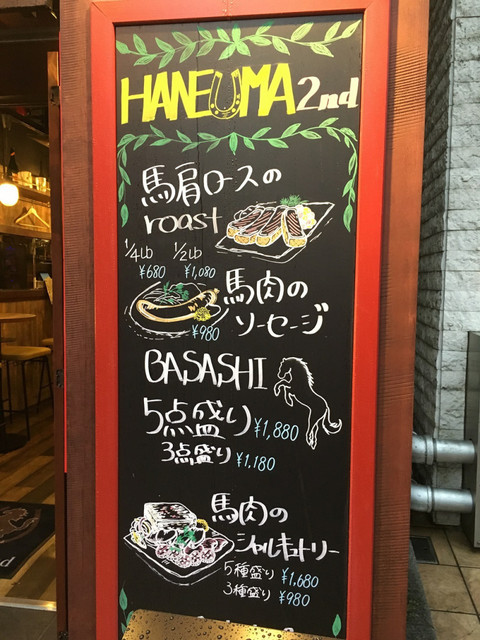 HANEUMA 2nd
馬肩ロースの
roast
1/4lb 1/2lb
¥680 ¥1,080
馬肉の
ソーセージ
¥980
BASASHI
5点盛り ¥1,880
3点盛り ¥1,180
馬肉の
シャルキュトリー
5種盛り ¥1,680
3種盛り ¥980